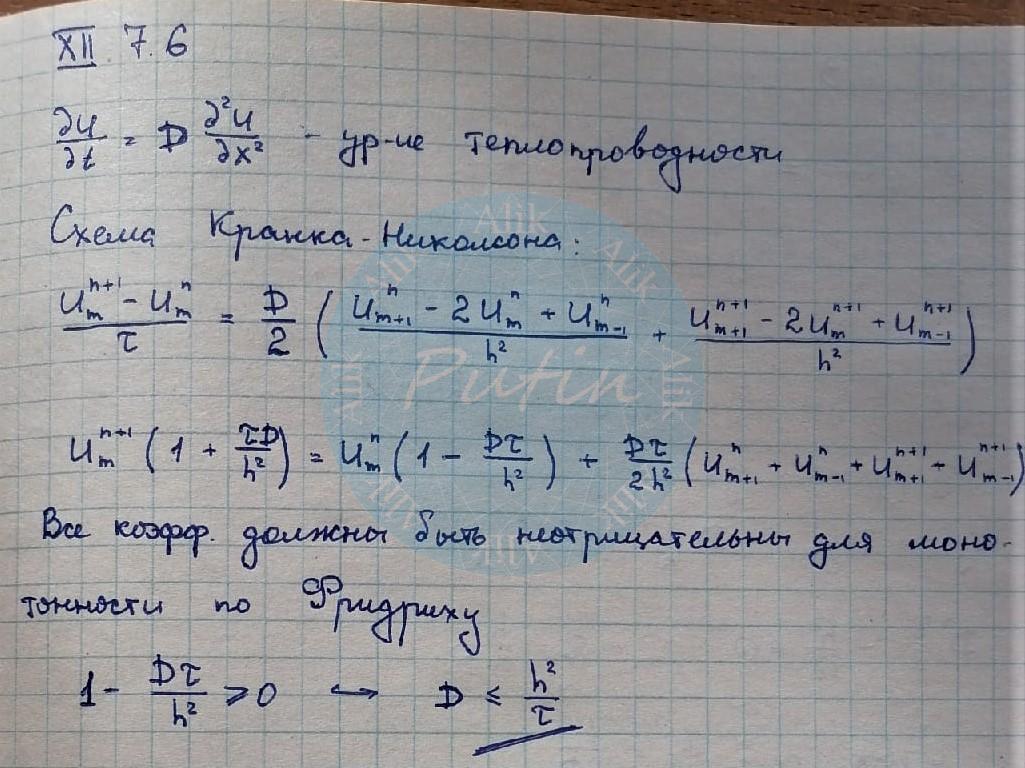 XII. 7.6
∂u/∂t = D ∂²u/∂x² - ур-ие теплопроводности
Схема Кранка-Николсона:
(u_m^{n+1} - u_m^n)/τ = D/2 ( (u_{m+1}^n - 2u_m^n + u_{m-1}^n)/h² + (u_{m+1}^{n+1} - 2u_m^{n+1} + u_{m-1}^{n+1})/h² )
u_m^{n+1} (1 + τD/h²) = u_m^n (1 - Dτ/h²) + Dτ/2h² (u_{m+1}^n + u_{m-1}^n + u_{m+1}^{n+1} + u_{m-1}^{n+1})
Все коэфф. должны быть неотрицательны для моно-
тонности по Фридриху
1 - Dτ/h² ⩾ 0 ↔ D ≤ h²/τ
Alik Putin